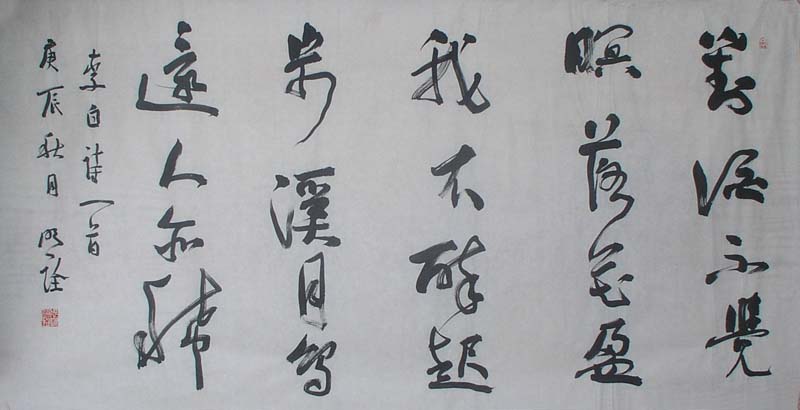 對酒不覺
暝落花盈
我衣醉起
步溪月鳥
還人亦稀
李白詩一首
庚辰秋月 明詮